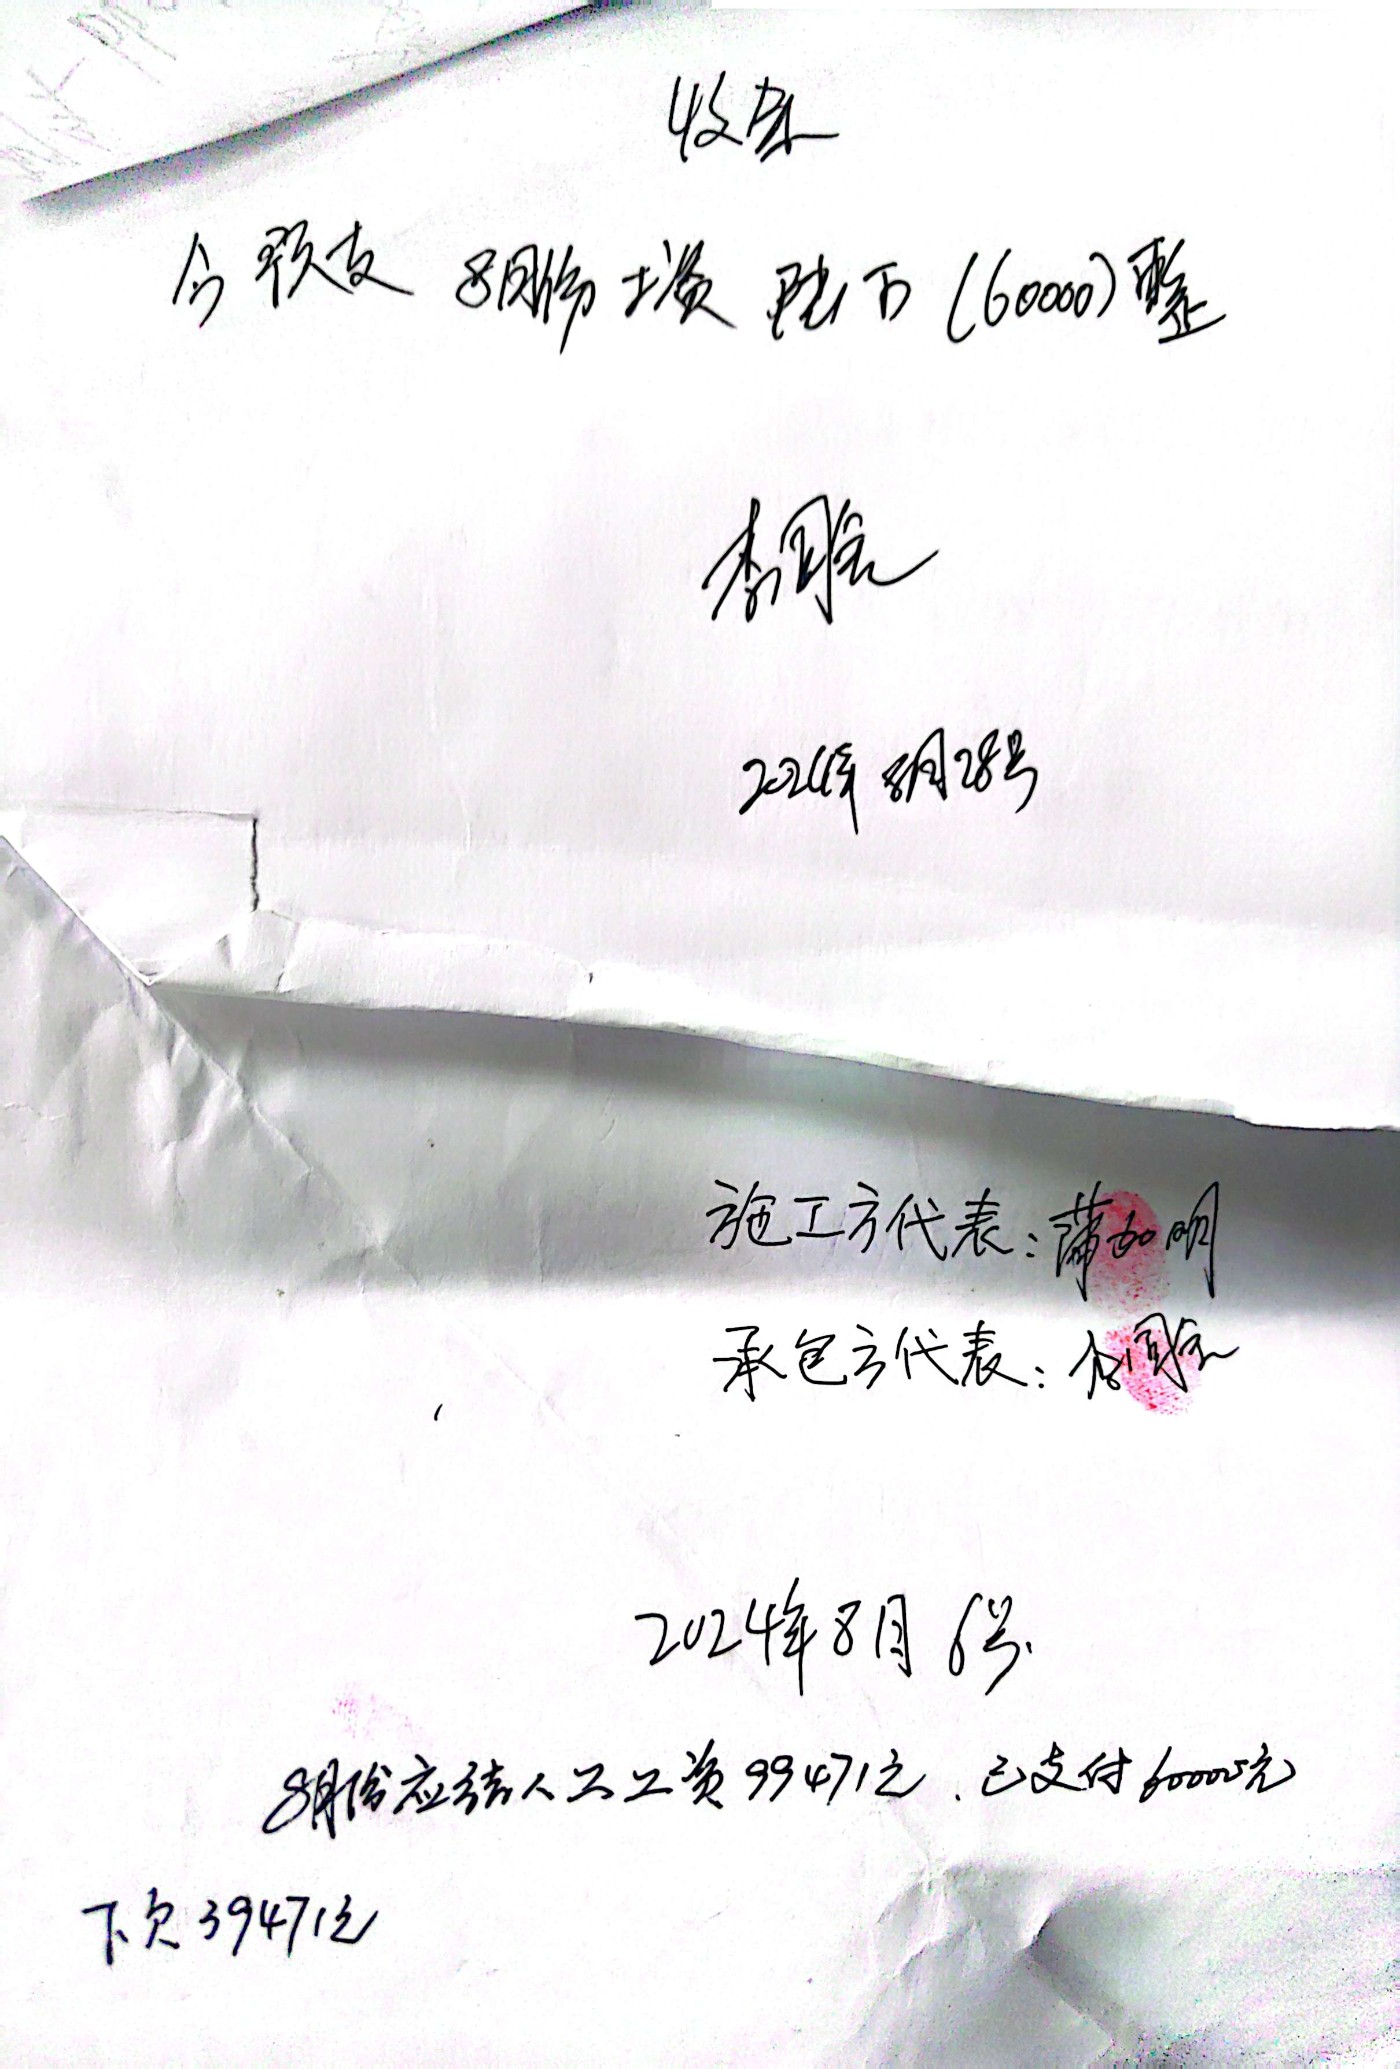 收条
今预支 8月份工资 陆万 (60000) 整
李同宝
2024年 8月28号
施工方代表：蒲加明
承包方代表：李同宝
2024年8月 6号.
8月份应结人工工资99471元、已支付60000元
下欠39471元